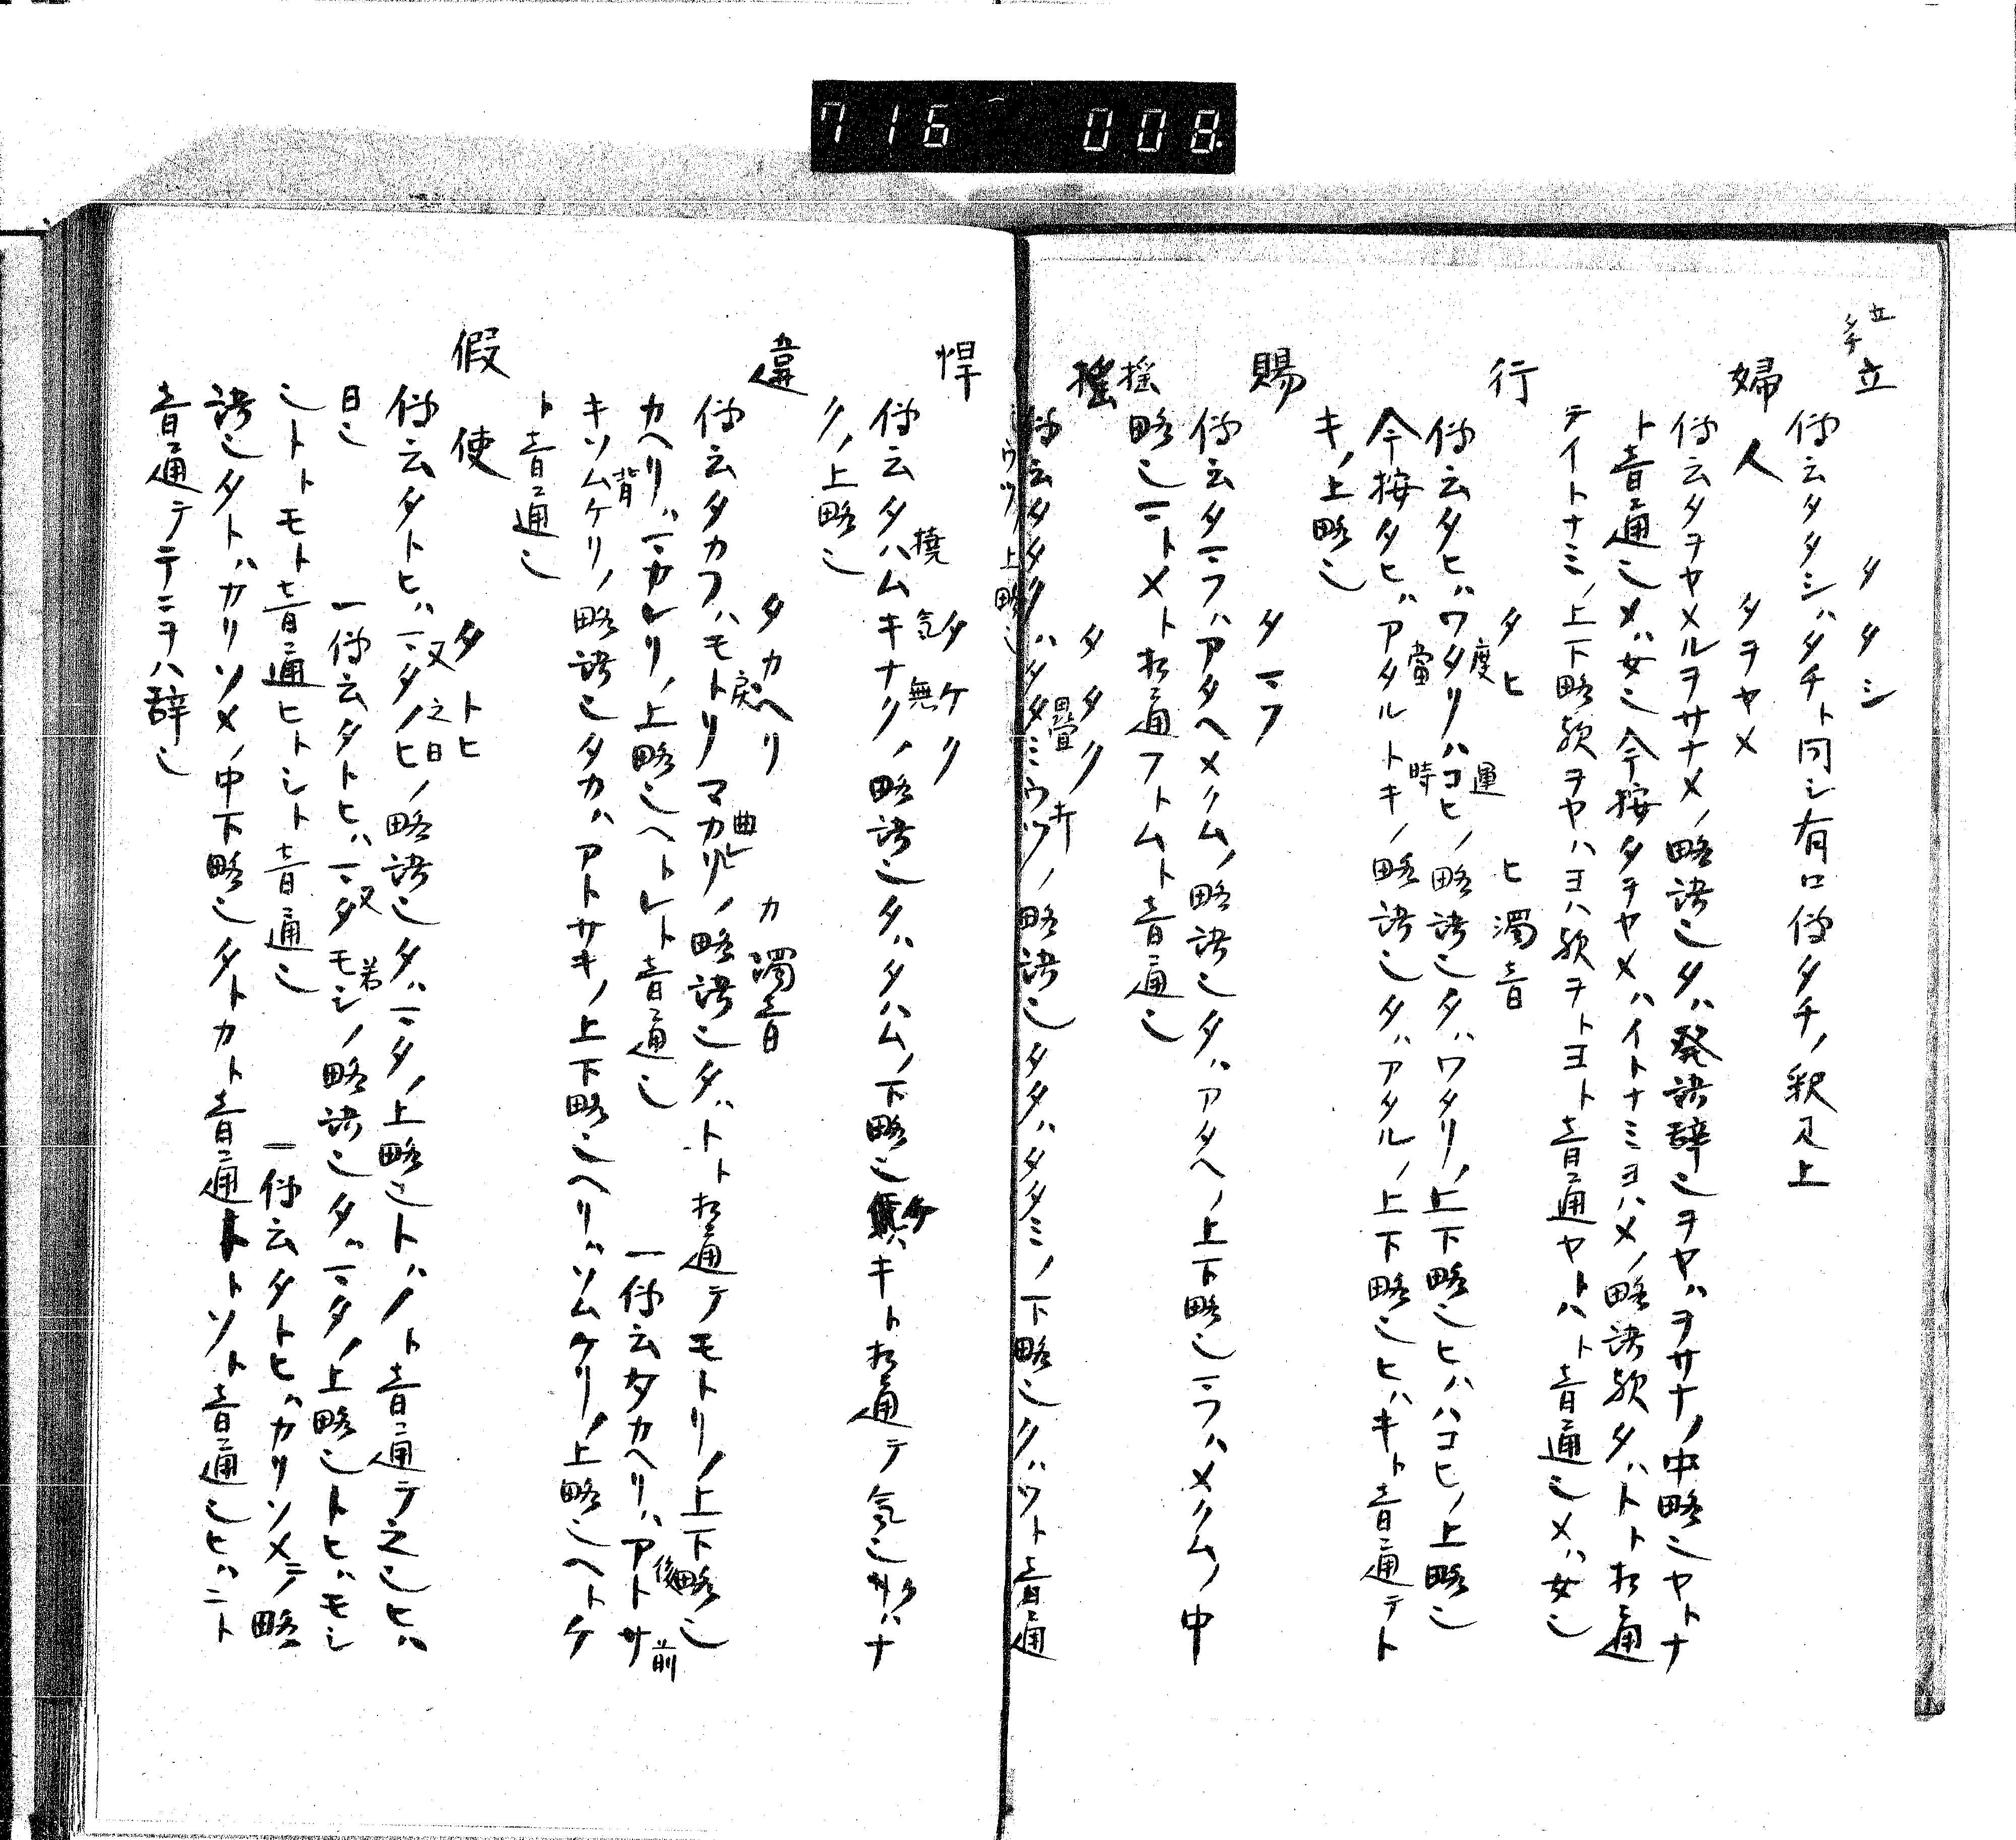 716 008
立 タタシ
立
タチ
傳云タタシハタチト同シ有口傳タチノ釈又上
婦人 タヲヤメ
傳云タヲヤメルヲサナメノ略語也タハ発語辞也ヲヤハヲサナノ中略也ヤトナ
ト音通也メハ女也今按タヲヤメハイトナミヨハメノ略語欤タハトト相通
テイトナミノ上下略欤ヲヤハヨハ欤ヲトヨト音通ヤトハト音通也メハ女也
行 タヒ ヒ濁音
傳云タヒハワタリハコヒノ略語也タハワタリノ上下略也ヒハハコヒノ上略也
度 運
今按タヒハアタルトキノ略語也タハアタルノ上下略也ヒハキト音通テト
當 時
キノ上略也
賜 タマフ
傳云タマフハアタヘメクムノ略語也タハアタヘノ上下略也マフハメクムノ中
略也マトメト相通フトムト音通也
搖 タタク
搖
傳云タタクハタタミウツノ略語也タタハタタミノ下略也クハツト音通
疊
ウツノ上略也
悍 タケク
傳云タハムキナクノ略語也タハタハムノ下略也ケハキト相通テ気也クハナ
撓 気 無
クノ上略也
違 タカヘリ カ濁音
傳云タカフハモトリマカリノ略語也タハトト相通テモトリノ上下略也
戻 曲
カヘリハマカレリノ上略也ヘトレト音通也 一傳云タカヘリハアトサ
後 前
キソムケリノ略語也タカハアトサキノ上下略也ヘリハソムケリノ上略也ヘトケ
背
ト音通也
假使 タトヒ
傳云タトヒハマタノヒノ略語也タハマタノ上略也トハノト音通テ之也ヒハ
又 之 日
日也 一傳云タトヒハマタモシノ略語也タハマタノ上略也トヒハモシ
又 若
也トトモト音通ヒトシト音通也 一傳云タトヒハカリソメテ略
語也タトハカリソメノ中下略也タトカト音通トトソト音通也ヒハニト
音通テテニヲハ辞也